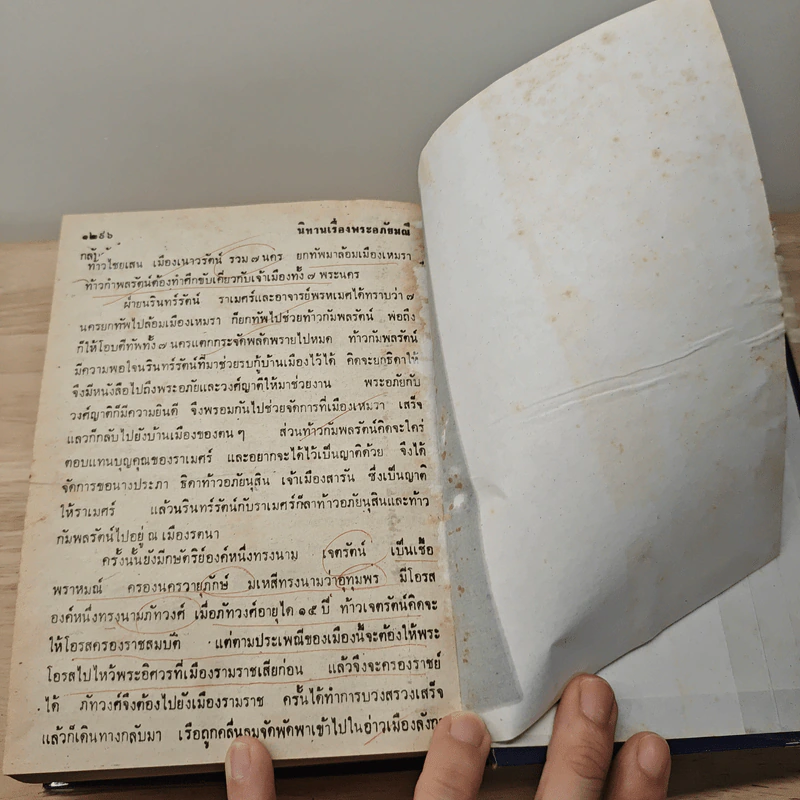 ๑๒๙๖ นิทานเรื่องพระอภัยมณี
กล้า
ท้าวไชยเสน เมืองเนาวรัตน์ รวม ๗ นคร ยกทัพมาล้อมเมืองเหมรา
ท้าวกำพลรัตน์ต้องทำศึกขับเคี่ยวกับเจ้าเมืองทั้ง ๗ พระนคร
ฝ่ายนรินทร์รัตน์ ราเมศร์และอาจารย์พรหเมศได้ทราบว่า ๗
นครยกทัพไปล้อมเมืองเหมรา ก็ยกทัพไปช่วยท้าวกัมพลรัตน์ พอถึง
ก็ให้โอบตีทัพทั้ง ๗ นครแตกกระจัดพลัดพรายไปหมด ท้าวกัมพลรัตน์
มีความพอใจนรินทร์รัตน์ที่มาช่วยรบกู้บ้านเมืองไว้ได้ คิดจะยกธิดาให้
จึงมีหนังสือไปถึงพระอภัยและวงศ์ญาติให้มาช่วยงาน พระอภัยกับ
วงศ์ญาติก็มีความยินดี จึงพรอมกันไปช่วยจัดการที่เมืองเหมวา เสร็จ
แลวก็กลับไปยังบ้านเมืองของตน ๆ ส่วนท้าวกัมพลรัตน์คิดจะใคร่
ตอบแทนบุญคุณของราเมศร์ และอยากจะได้ไว้เป็นญาติด้วย จึงได้
จัดการขอนางประภา ธิดาท้าวอภัยนุสิน เจ้าเมืองสารัน ซึ่งเป็นญาติ
ให้ราเมศร์ แล้วนรินทร์รัตน์กับราเมศร์ก็ลาท้าวอภัยนุสินและท้าว
กัมพลรัตน์ไปอยู่ ณ เมืองรตนา
ครั้งนั้นยังมีกษัตริย์องค์หนึ่งทรงนาม เจตรัตน์ เป็นเชื้อ
พราหมณ์ ครองนครวายุภักษ์ มเหสีทรงนามว่าอุทุมพร มีโอรส
องค์หนึ่งทรงนามภัทวงศ์ เมื่อภัทวงศ์อายุได ๑๕ ปี ท้าวเจตรัตน์คิดจะ
ให้โอรสครองราชสมบัติ แต่ตามประเพณีของเมืองนี้จะต้องให้พระ
โอรสไปไหว้พระอิศวรที่เมืองรามราชเสียก่อน แล้วจึงจะครองราชย์
ได้ ภัทวงศ์จึงต้องไปยังเมืองรามราช ครั้นได้ทำการบวงสรวงเสร็จ
แล้วก็เดินทางกลับมา เรือถูกคลื่นลมจัดพัดพาเข้าไปในอ่าวเมืองลังกา